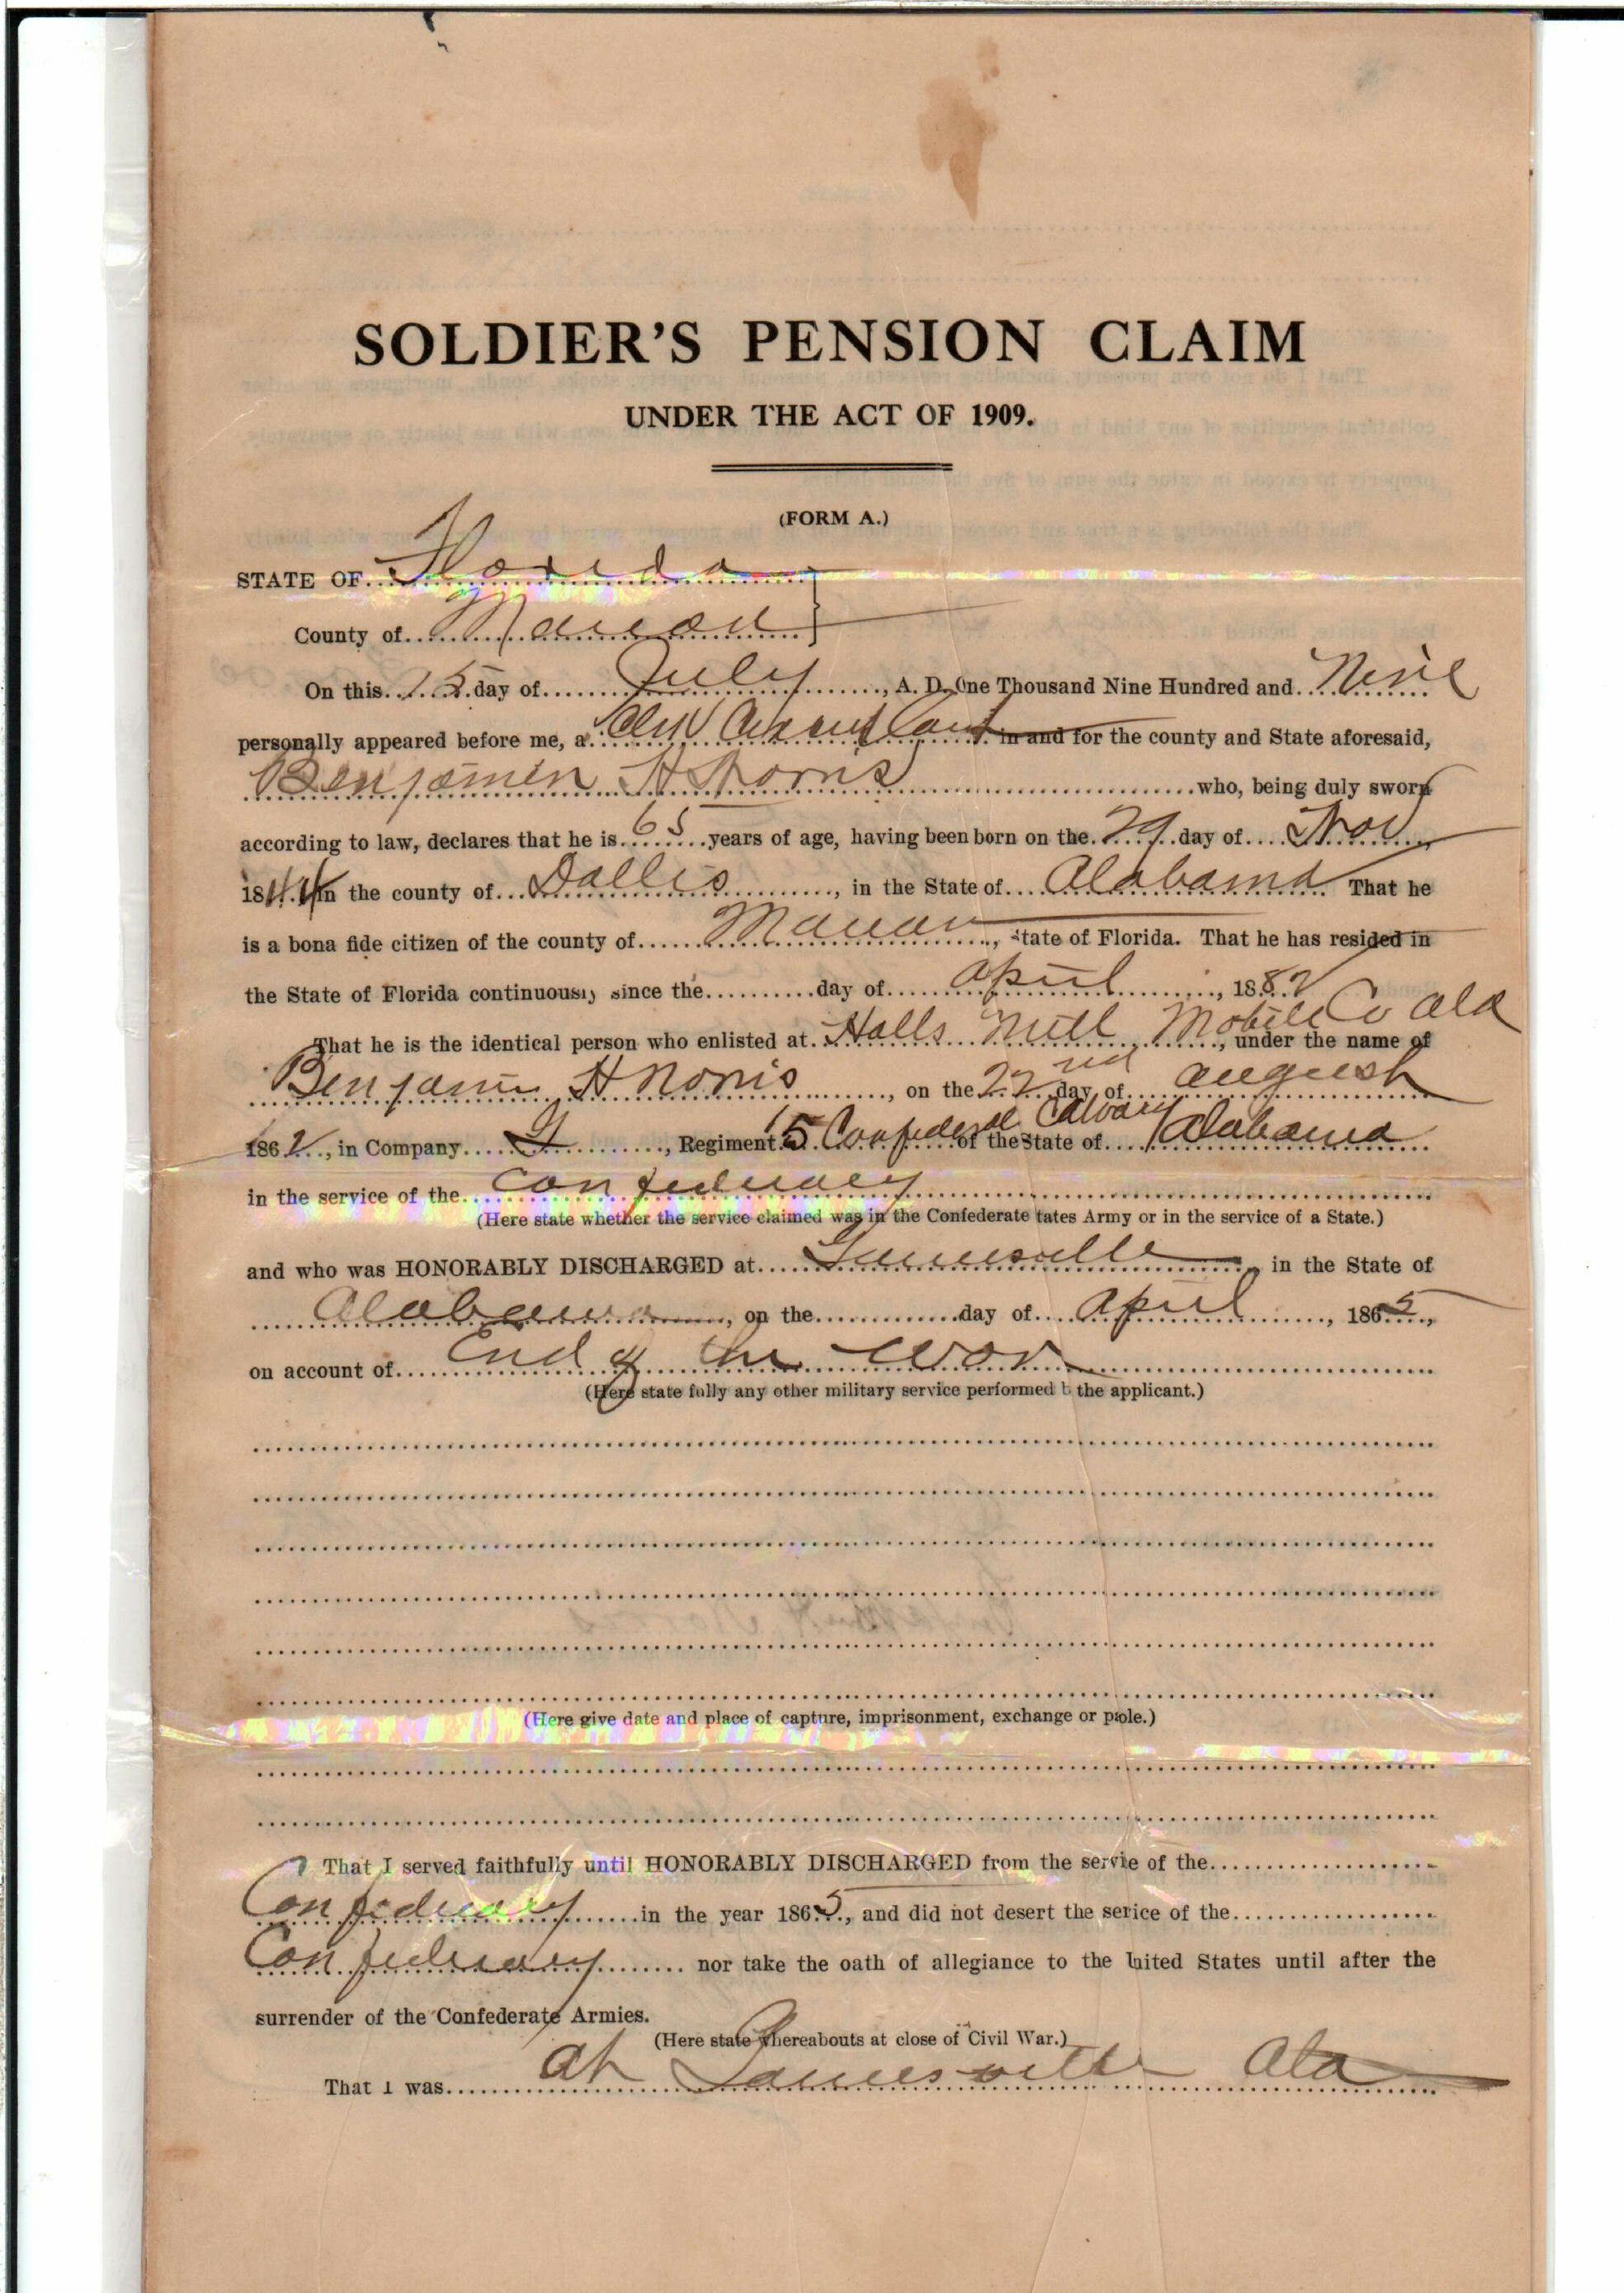 SOLDIER'S PENSION CLAIM
UNDER THE ACT OF 1909.
(FORM A.)
STATE OF Florida
County of Marion
On this 15 day of July, A. D. One Thousand Nine Hundred and Nine
personally appeared before me, a Clerk Circuit Court in and for the county and State aforesaid,
Benjamin H Norris who, being duly sworn
according to law, declares that he is 65 years of age, having been born on the 29 day of Nov,
1844 in the county of Dallis, in the State of Alabama That he
is a bona fide citizen of the county of Marion, State of Florida. That he has resided in
the State of Florida continuously since the day of April, 1882
That he is the identical person who enlisted at Halls Mill Mobile Co Ala, under the name of
Benjamin H Norris, on the 22nd day of August
1862, in Company, Regiment 15 Confederat Calvary of the State of Alabama
in the service of the Confederacy
(Here state whether the service claimed was in the Confederate tates Army or in the service of a State.)
and who was HONORABLY DISCHARGED at, in the State of
Alabama, on the day of April, 1865,
on account of End of the War
(Here state fully any other military service performed b the applicant.)
(Here give date and place of capture, imprisonment, exchange or prole.)
That I served faithfully until HONORABLY DISCHARGED from the servie of the
Confederacy in the year 1865, and did not desert the serice of the
Confederacy nor take the oath of allegiance to the United States until after the
surrender of the Confederate Armies.
(Here state whereabouts at close of Civil War.)
That I was at Ala